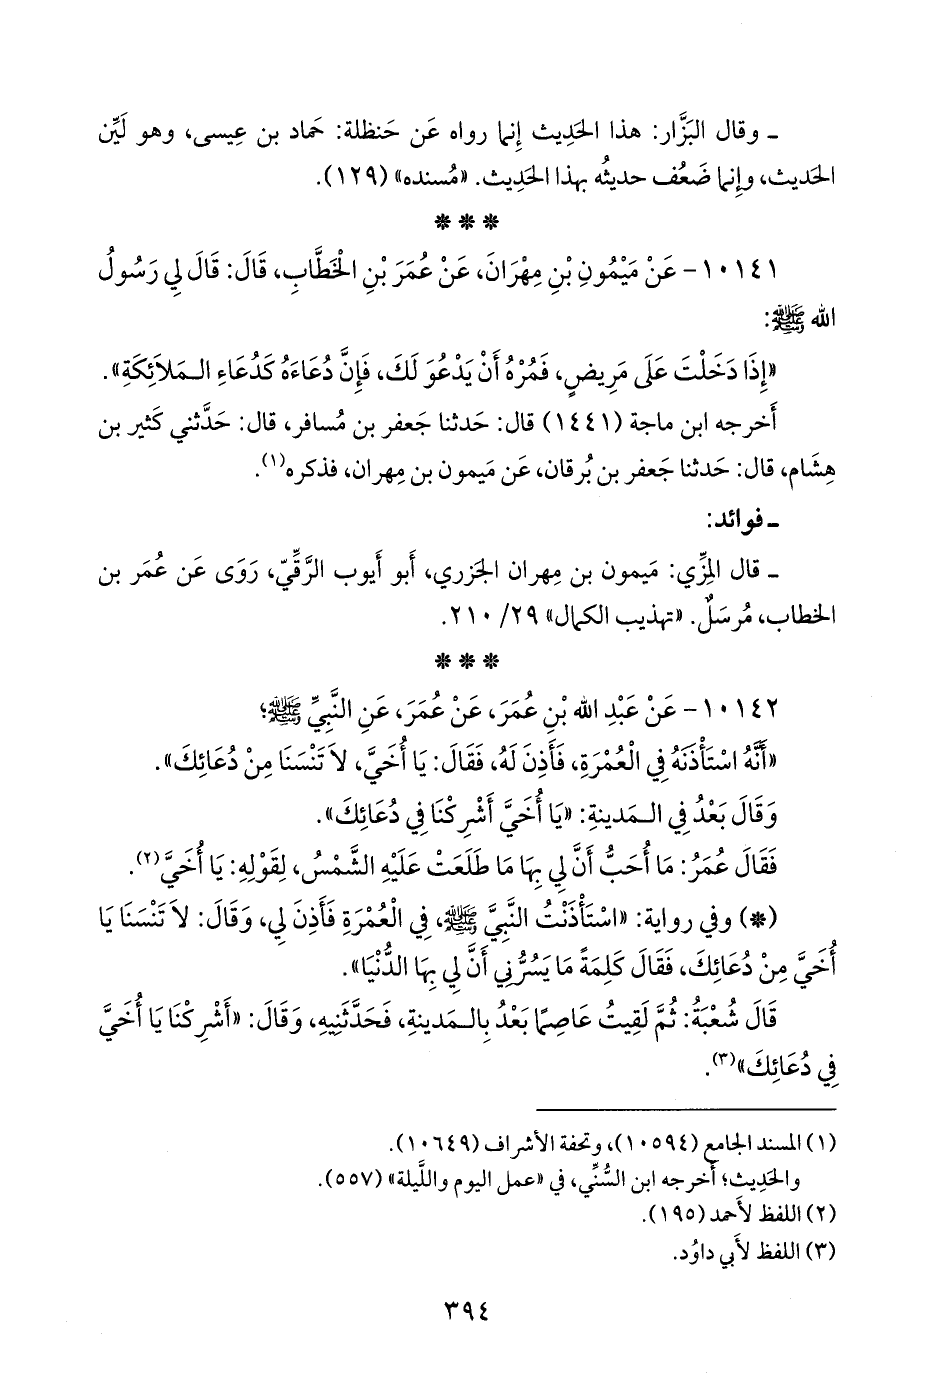 ـ وقال البَزَّار: هذا الحَدِيث إِنما رواه عَن حَنظلة: حَماد بن عِيسى، وهو لَيِّن
الحَديث، وإِنما ضَعُف حديثُه بهذا الحَدِيث. «مُسنده» (١٢٩).
* * *
١٠١٤١- عَنْ مَيْمُونِ بْنِ مِهْرَانَ، عَنْ عُمَرَ بْنِ الْخَطَّابِ، قَالَ: قَالَ لِي رَسُولُ
الله ﷺ:
«إِذَا دَخَلْتَ عَلَى مَرِيضٍ، فَمُرْهُ أَنْ يَدْعُوَ لَكَ، فَإِنَّ دُعَاءَهُ كَدُعَاءِ الـمَلاَئِكَةِ».
أَخرجه ابن ماجة (١٤٤١) قال: حَدثنا جَعفر بن مُسافر، قال: حَدَّثني كَثير بن
هِشَام، قال: حَدثنا جَعفر بن بُرقان، عَن مَيمون بن مِهران، فذكره(١).
ـ فوائد:
ـ قال المِزِّي: مَيمون بن مِهران الجَزري، أَبو أَيوب الرَّقِّيّ، رَوَى عَن عُمَر بن
الخطاب، مُرسَلٌ. «تهذيب الكمال» ٢٩/ ٢١٠.
* * *
١٠١٤٢- عَنْ عَبْدِ الله بْنِ عُمَرَ، عَنْ عُمَرَ، عَنِ النَّبِيِّ ﷺ؛
«أَنَّهُ اسْتَأْذَنَهُ فِي الْعُمْرَةِ، فَأَذِنَ لَهُ، فَقَالَ: يَا أُخَيَّ، لاَ تَنْسَنَا مِنْ دُعَائِكَ».
وَقَالَ بَعْدُ فِي الـمَدينةِ: «يَا أُخَيَّ أَشْرِكْنَا فِي دُعَائِكَ».
فَقَالَ عُمَرُ: مَا أُحَبُّ أَنَّ لِي بِهَا مَا طَلَعَتْ عَلَيْهِ الشَّمْسُ، لِقَوْلِهِ: يَا أُخَيَّ(٢).
(*) وفي رواية: «اسْتَأْذَنْتُ النَّبِيَّ ﷺ، فِي الْعُمْرَةِ فَأَذِنَ لِي، وَقَالَ: لاَ تَنْسَنَا يَا
أُخَيَّ مِنْ دُعَائِكَ، فَقَالَ كَلِمَةً مَا يَسُرُّنِي أَنَّ لِي بِهَا الدُّنْيَا».
قَالَ شُعْبَةُ: ثُمَّ لَقِيتُ عَاصِمًا بَعْدُ بِالـمَدينةِ، فَحَدَّثَنِيهِ، وَقَالَ: «أَشْرِكْنَا يَا أُخَيَّ
فِي دُعَائِكَ»(٣).
(١) المسند الجامع (١٠٥٩٤)، وتحفة الأشراف (١٠٦٤٩).
والحَدِيث؛ أَخرجه ابن السُّنِّي، في «عمل اليوم واللَّيلة» (٥٥٧).
(٢) اللفظ لأَحمد (١٩٥).
(٣) اللفظ لأَبي داوُد.
٣٩٤